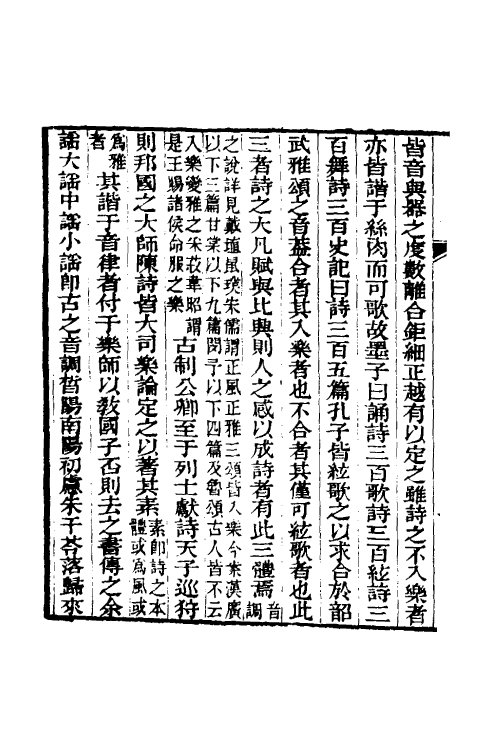 皆音與器之度數離合鉅細正越有以定之雖詩之不入樂者
亦皆諧于絲肉而可歌故墨子曰誦詩三百歌詩三百絃詩三
百舞詩三百史記曰詩三百五篇孔子皆絃歌之以求合於韶
武雅頌之音葢合者其入樂者也不合者其僅可絃歌者也此
三者詩之大凡賦與比興則人之感以成詩者有此三體焉音調
之說詳見戴埴鼠璞朱儒謂正風正雅三頌皆入樂今案漢廣
以下三篇甘棠以下九篇閔予以下四篇及魯頌古人皆不云
入樂變雅之采菽韋昭謂
是王賜諸侯命服之樂
古制公卿至于列士獻詩天子巡狩
則邦國之大師陳詩皆大司樂論定之以著其素素卽詩之本
體或爲風或
爲雅
者
其諧于音律者付于樂師以敎國子否則去之書傳之余
謡大謡中謡小謡卽古之音調晳陽南陽初慮朱干苓落歸來